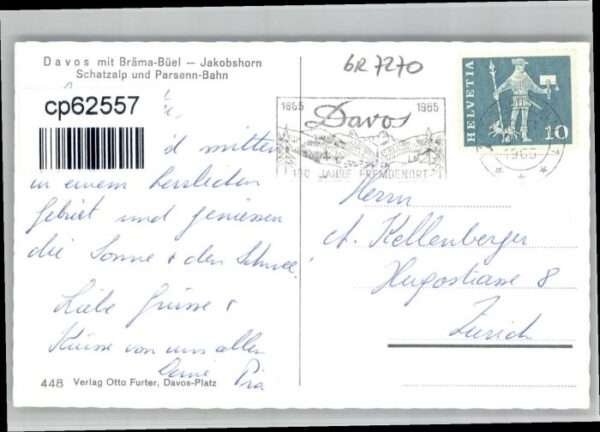 Davos mit Bräma-Büel — Jakobshorn
Schatzalp und Parsenn-Bahn
GR 7270
cp62557
1865 Davos 1965
100 JAHRE FREMDENORT
HELVETIA
10
1965
mitten
in einem herrlichen
Gebiet und geniessen
die Sonne & den Schnee.
Liebe Grüsse &
Küsse von uns allen
Deine Pia
Herrn
A. Kellenberger
Hugostrasse 8
Zürich
448 Verlag Otto Furter, Davos-Platz